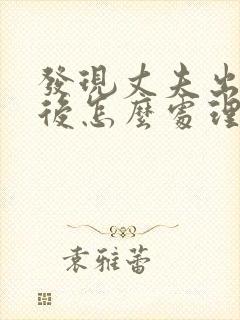 發現丈夫出
後怎麼處理
袁雅蕾